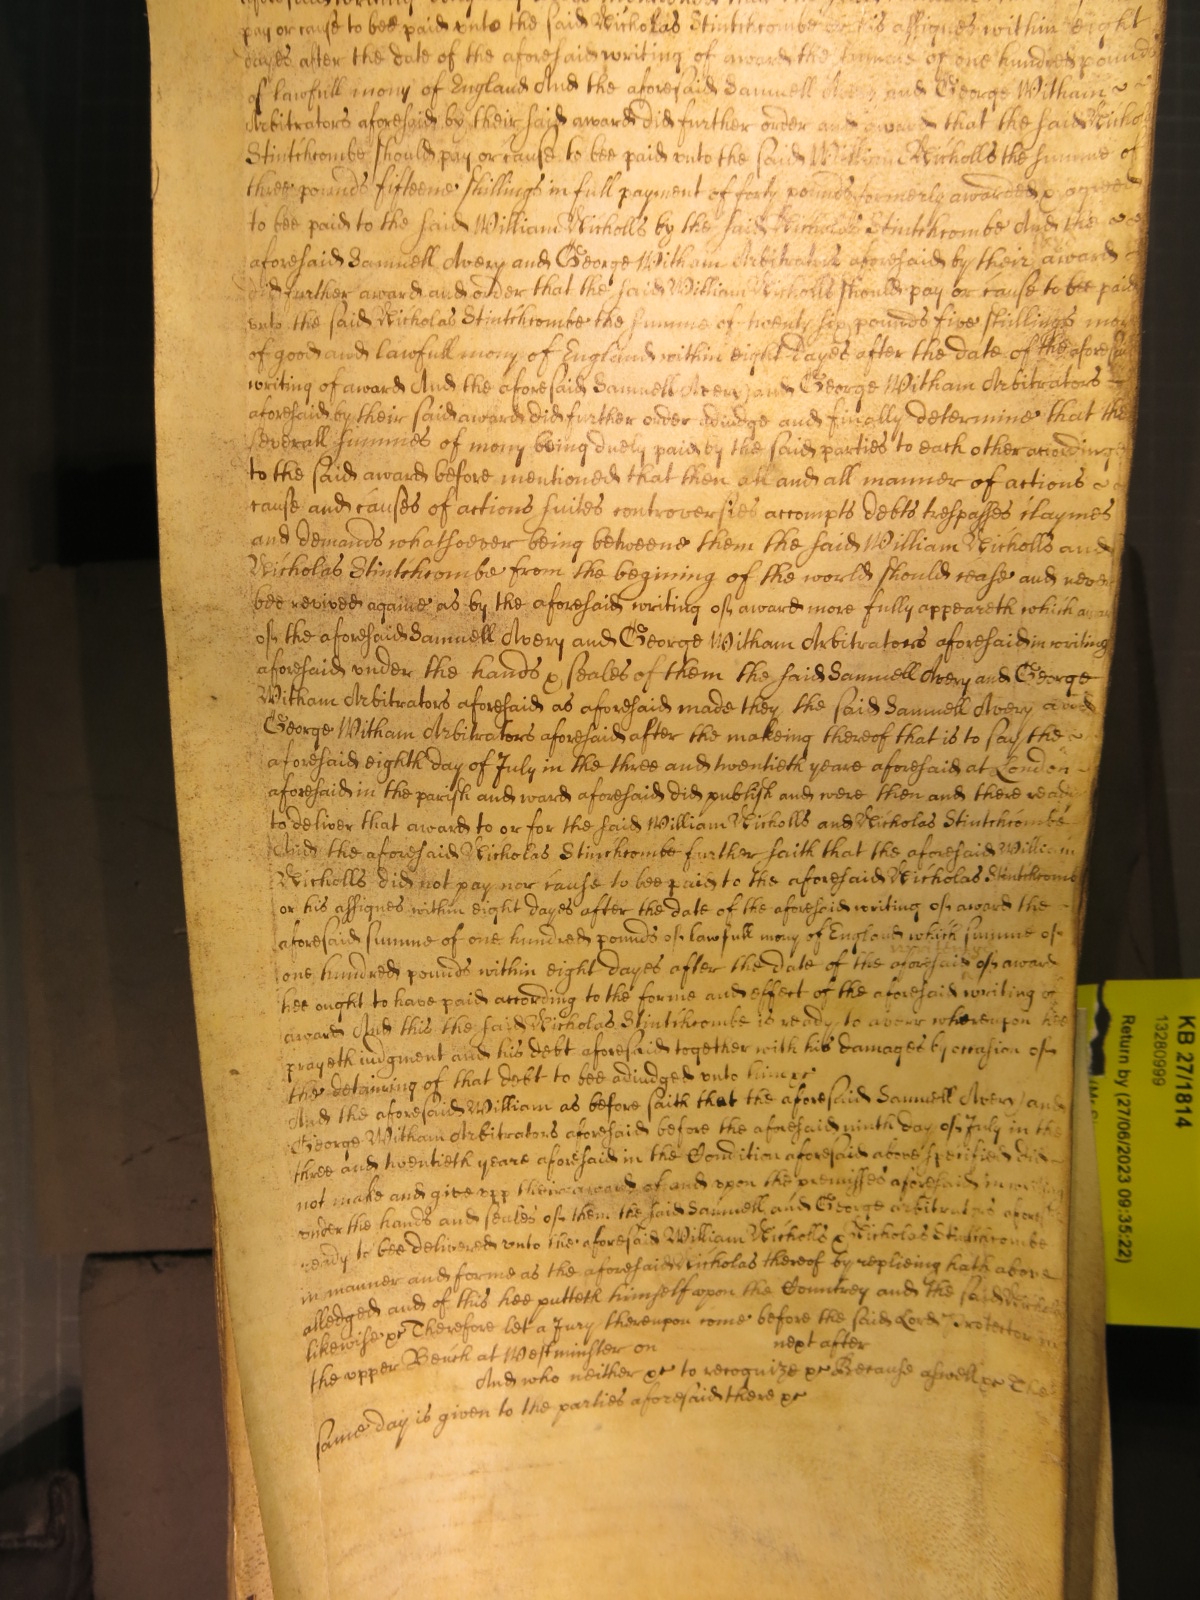 pay or cause to bee paid vnto the said Nicholas Stintchcombe or his assignes within eight
dayes after the date of the aforesaid writing of award the summe of one hundred pounds
of lawfull mony of England And the aforesaid Samuell Avery and George Witham
Arbitrators aforesaid by their said award did further order and award that the said Nicho
Stintchcombe should pay or cause to bee paid vnto the said William Nicholls the summe of
three pounds fifteene shillings in full payment of forty pounds formerly awarded & agreed
to bee paid to the said William Nicholls by the said Nicholas Stintchcombe And the
aforesaid Samuell Avery and George Witham Arbitrators aforesaid by their award
did further award and order that the said William Nicholls should pay or cause to bee paid
vnto the said Nicholas Stintchcombe the summe of twenty six pounds five shillings more
of good and lawfull mony of England within eight dayes after the date of the aforesaid
writing of award And the aforesaid Samuell Avery and George Witham Arbitrators
aforesaid by their said award did further order adiudge and finally determine that the
severall summes of mony being duely paid by the said parties to each other accordinge
to the said award before mentioned that then all and all manner of actions
cause and causes of actions suites controversies accompts debts trespasses claymes
and demands whatsoever being betweene them the said William Nicholls and
Nicholas Stintchcombe from the begining of the world should cease and never
bee revived againe as by the aforesaid writing of award more fully appeareth which award
of the aforesaid Samuell Avery and George Witham Arbitrators aforesaid in writing
aforesaid vnder the hands & seales of them the said Samuell Avery and George
Witham Arbitrators aforesaid as aforesaid made they the said Samuell Avery and
George Witham Arbitrators aforesaid after the makeing thereof that is to say the
aforesaid eighth day of July in the three and twentieth yeare aforesaid at London
aforesaid in the parish and ward aforesaid did publish and were then and there ready
to deliver that award to or for the said William Nicholls and Nicholas Stintchcombe
And the aforesaid Nicholas Stintchcombe further saith that the aforesaid William
Nicholls did not pay nor cause to bee paid to the aforesaid Nicholas Stintchcombe
or his assignes within eight dayes after the date of the aforesaid writing of award the
aforesaid summe of one hundred pounds of lawfull mony of England which summe of
one hundred pounds within eight dayes after the date of the aforesaid of award
hee ought to have paid according to the forme and effect of the aforesaid writing of
award And this the said Nicholas Stintchcombe is ready to averr whereupon hee
prayeth iudgment and his debt aforesaid together with his damages by occasion of
the detaining of that debt to bee adiudged vnto him &c
And the aforesaid William as before saith that the aforesaid Samuell Avery and
George Witham Arbitrators aforesaid before the aforesaid ninth day of July in the
three and twentieth yeare aforesaid in the Condition aforesaid above specified did
not make and give vpp their award of and vpon the premisses aforesaid in writing
vnder the hands and seales of them the said Samuell and George arbitrators afore
ready to bee delivered vnto the aforesaid William Nicholls & Nicholas Stintchcombe
in manner and forme as the aforesaid Nicholas thereof by replieing hath above
alledged and of this hee putteth himself vpon the Countrey and the said Nicholas
likewise &c Therefore let a Jury thereupon come before the said Lord Protector in
the vpper Bench at Westminster on next after
And who neither &c to recognize &c Because aswell &c The
same day is given to the parties aforesaid there &c
KB 27/1814
13280999
Return by (27/06/2023 09:35:22)